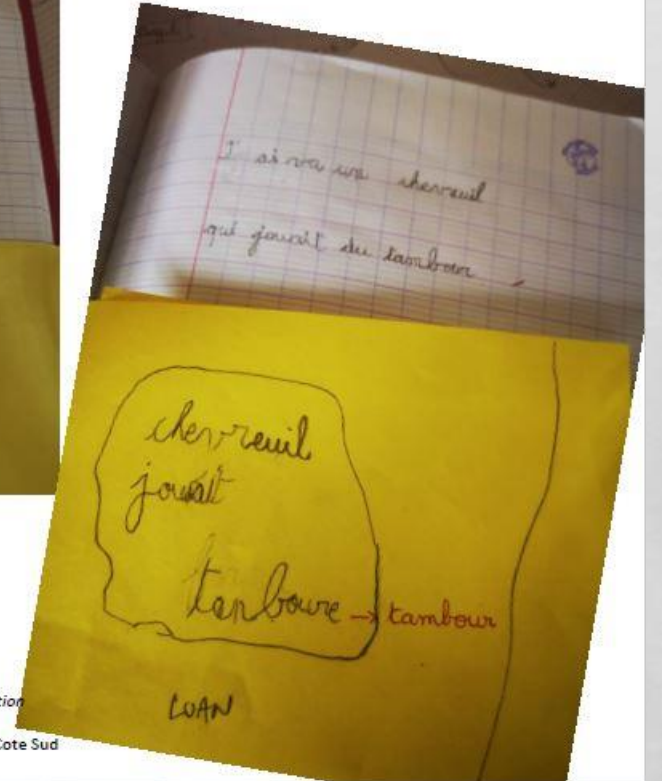 J'ai vu un chevreuil
qui jouait du tambour.
chevreuil
jouait
tanboure → tambour
LUAN
tion
Cote Sud